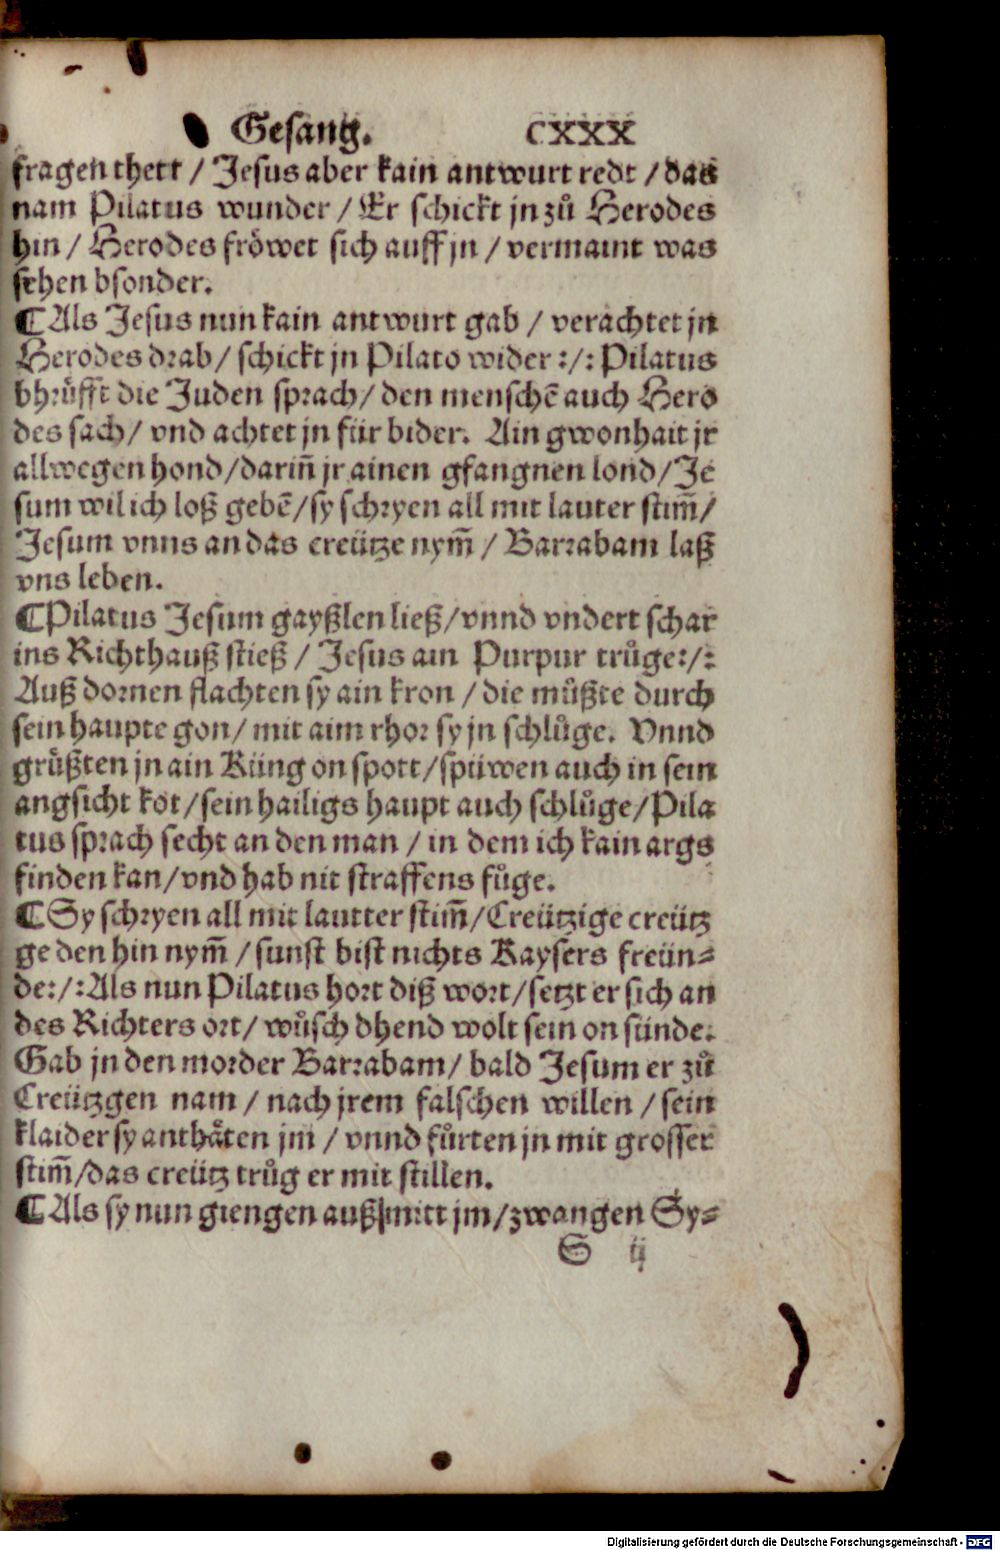 Gesang. CXXX
fragen thett / Jesus aber kain antwurt redt / das
nam Pilatus wunder / Er schickt jn zů Herodes
hin / Herodes fröwet sich auff jn / vermaint was
sehen bsonder.
¶ Als Jesus nun kain antwurt gab / verachtet jn
Herodes drab / schickt jn Pilato wider :/: Pilatus
bhrüfft die Juden sprach / den menschē auch Hero
des sach / vnd achtet jn für bider. Ain gwonhait jr
allwegen hond / dariñ jr ainen gfangnen lond / Je
sum wil ich loß gebē / sy schryen all mit lauter stim̃ /
Jesum vnns an das creütze nym̃ / Barrabam laß
vns leben.
¶ Pilatus Jesum gayßlen ließ / vnnd vndert schar
ins Richthauß stieß / Jesus ain Purpur trůge :/:
Auß dornen flachten sy ain kron / die můßte durch
sein haupte gon / mit aim rhor sy jn schlůge. Vnnd
grůßten jn ain Küng on spott / spüwen auch in sein
angsicht kot / sein hailigs haupt auch schlůge / Pila
tus sprach secht an den man / in dem ich kain args
finden kan / vnd hab nit straffens fůge.
¶ Sy schryen all mit lautter stim̃ / Creützige creütz
ge den hin nym̃ / sunst bist nichts Kaysers freün⸗
de :/: Als nun Pilatus hort diß wort / setzt er sich an
des Richters ort / wůsch dhend wolt sein on sünde.
Gab jn den morder Barrabam / bald Jesum er zů
Creützgen nam / nach jrem falschen willen / sein
klaider sy anthåten jm / vnnd fůrten jn mit grosser
stim̃ / das creütz trůg er mit stillen.
¶ Als sy nun giengen auß mitt jm / zwangen Sy⸗
S ij
Digitalisierung gefördert durch die Deutsche Forschungsgemeinschaft - DFG